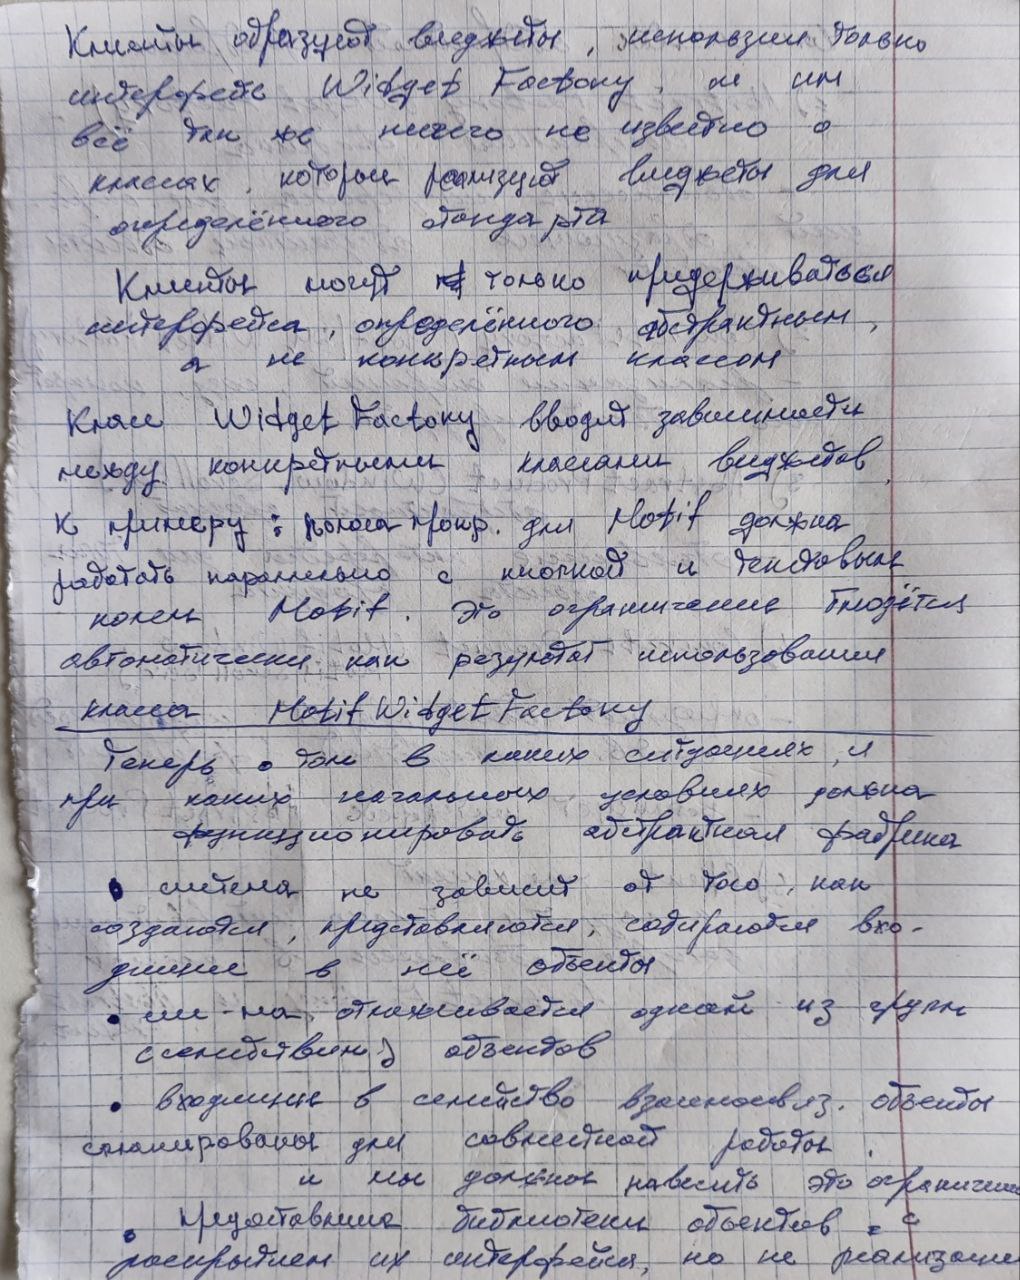 Клиенты образуют виджеты, используя только
интерфейс Widget Factory, и им
всё так же ничего не известно о
классах, которые реализуют виджеты для
определённого стандарта
Клиенты могут только придерживаться
интерфейса, определённого абстрактным,
а не конкретным классом
Класс Widget Factory вводит зависимости
между конкретными классами виджетов
К примеру: полоса прокр. для Motif должна
работать параллельно с кнопкой и текстовым
полем Motif. Это ограничение блюдётся
автоматически, как результат использования
класса MotifWidgetFactory
Теперь о том в каких ситуациях, и
при каких начальных условиях должна
функционировать абстрактная фабрика
• система не зависит от того, как
создаются, представляются, собираются вхо-
дящие в неё объекты
• сис-ма отслеживается одной из групп
(семейством) объектов
• входящие в семейство взаимосвяз. объекты
спланированы для совместной работы,
и мы должны навесить это
• библиотеки объектов с
раскрытием их интерфейса, но не